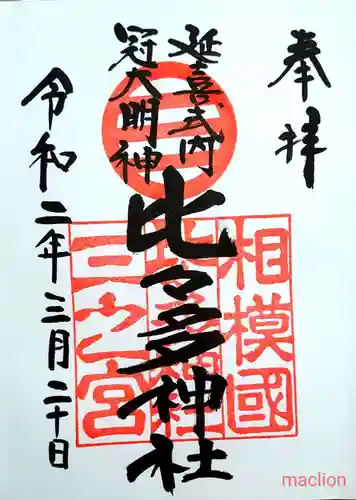 奉拝
延喜式内
冠大明神
三
相模國
三之宮
比々多神社
令和二年三月二十日
maclion